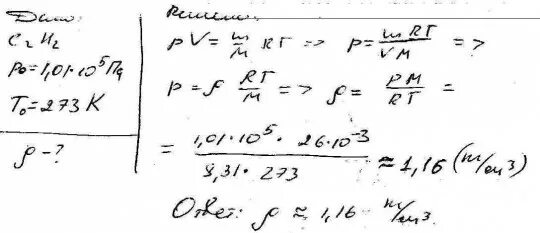 Дано:
C₂H₂
P₀=1,01·10⁵Па
T₀=273 K
ρ-?
Решение:
pV = m/M RT => p = mRT/VM =>
p = ρ RT/M => ρ = PM/RT =
= 1,01·10⁵ · 26·10⁻³ / 8,31·273 ≈ 1,16 (кг/м³)
Ответ: ρ ≈ 1,16 кг/м³.